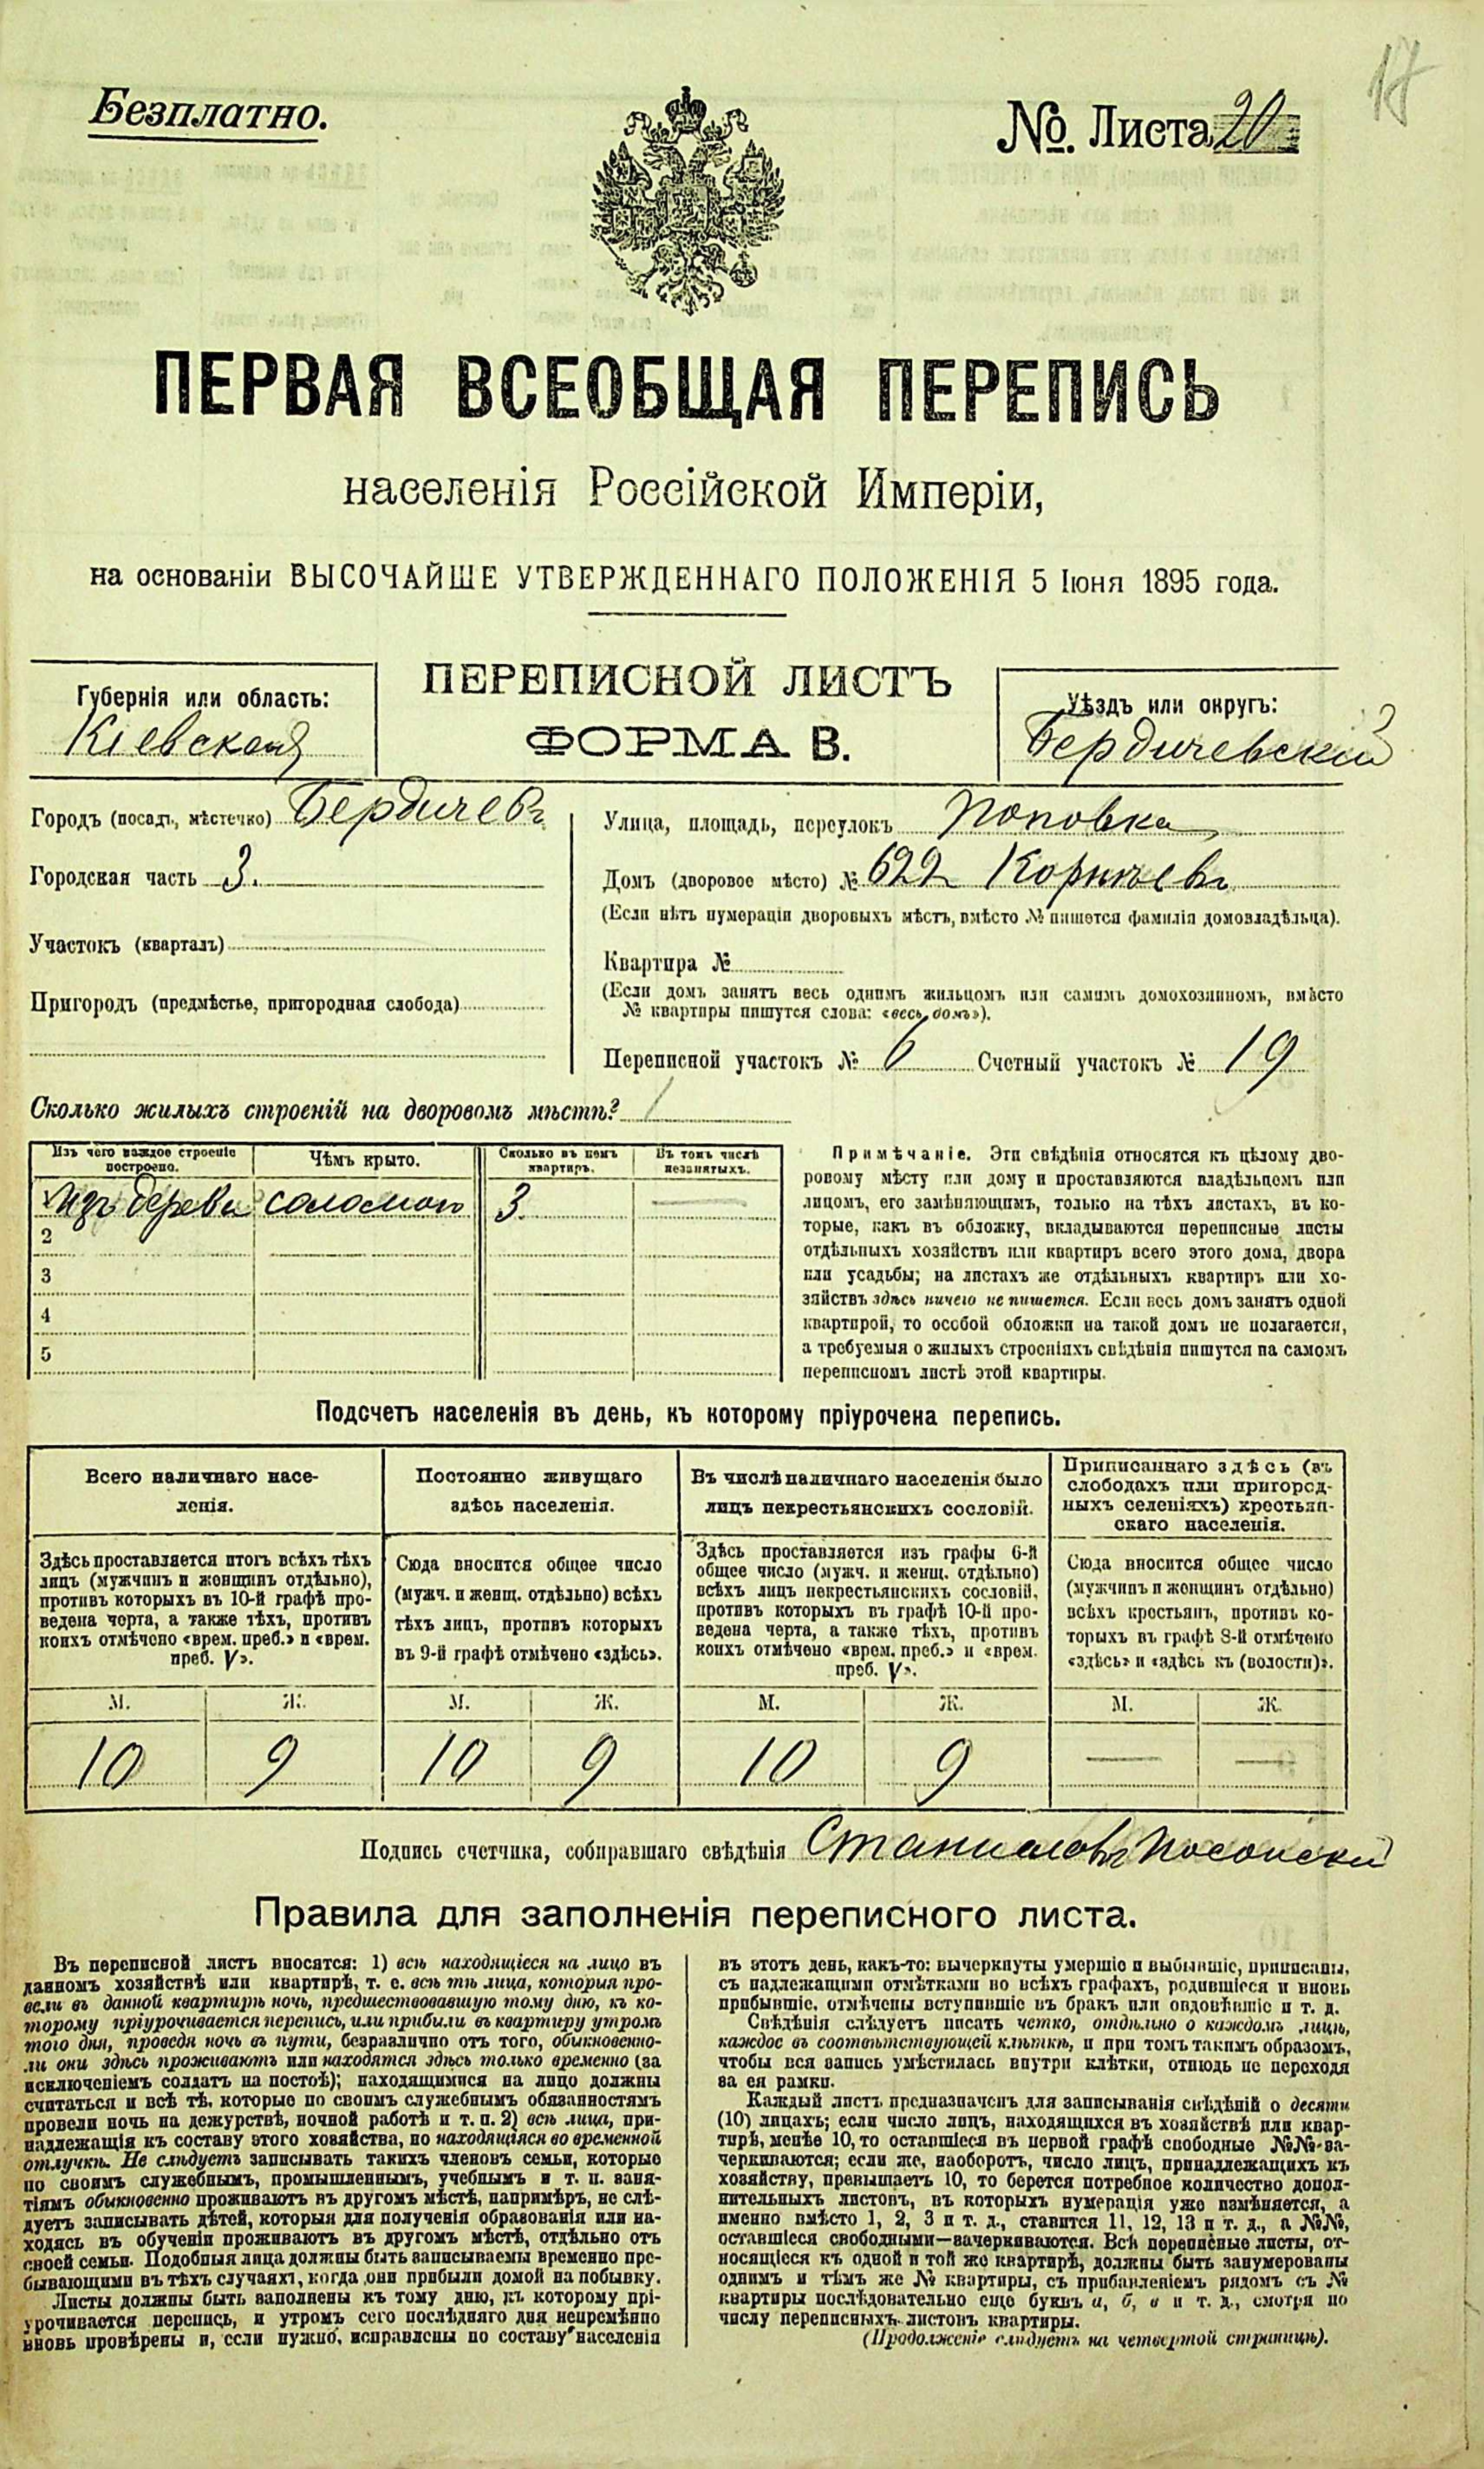 17
Безплатно.
№. Листа 20
ПЕРВАЯ ВСЕОБЩАЯ ПЕРЕПИСЬ
населенія Россійской Имперіи,
на основаніи ВЫСОЧАЙШЕ УТВЕРЖДЕННАГО ПОЛОЖЕНІЯ 5 Іюня 1895 года.
Губернія или область:
Кіевская
ПЕРЕПИСНОЙ ЛИСТЪ
ФОРМА В.
Уѣздъ или округъ:
Бердичевскій
Городъ (посадъ, мѣстечко) Бердичевъ
Городская часть 3.
Участокъ (кварталъ)
Пригородъ (предмѣстье, пригородная слобода)
Улица, площадь, переулокъ Поповка
Домъ (дворовое мѣсто) № 622
(Если нѣтъ нумераціи дворовыхъ мѣстъ, вмѣсто № пишется фамилія домовладѣльца).
Квартира №
(Если домъ занятъ весь однимъ жильцомъ или самимъ домохозяиномъ, вмѣсто
№ квартиры пишутся слова: «весь домъ»).
Переписной участокъ № 6 Счетный участокъ № 19
Сколько жилыхъ строеній на дворовомъ мѣстѣ? 1
Изъ чего каждое строеніе построено. Чѣмъ крыто. Сколько въ немъ квартиръ. Въ томъ числѣ незанятыхъ.
изъ дерева соломою 3 —
2
3
4
5
Примѣчаніе. Эти свѣдѣнія относятся къ цѣлому дво-
ровому мѣсту или дому и проставляются владѣльцемъ или
лицомъ, его замѣняющимъ, только на тѣхъ листахъ, въ ко-
торые, какъ въ обложку, вкладываются переписные листы
отдѣльныхъ хозяйствъ или квартиръ всего этого дома, двора
или усадьбы; на листахъ же отдѣльныхъ квартиръ или хо-
зяйствъ здѣсь ничего не пишется. Если весь домъ занятъ одной
квартирой, то особой обложки на такой домъ не полагается,
а требуемыя о жилыхъ строеніяхъ свѣдѣнія пишутся на самомъ
переписномъ листѣ этой квартиры.
Подсчетъ населенія въ день, къ которому пріурочена перепись.
Всего наличнаго насе-
ленія.
Здѣсь проставляется итогъ всѣхъ тѣхъ
лицъ (мужчинъ и женщинъ отдѣльно),
противъ которыхъ въ 10-й графѣ про-
ведена черта, а также тѣхъ, противъ
коихъ отмѣчено «врем. преб.» и «врем.
преб. V».
Постоянно живущаго
здѣсь населенія.
Сюда вносится общее число
(мужч. и женщ. отдѣльно) всѣхъ
тѣхъ лицъ, противъ которыхъ
въ 9-й графѣ отмѣчено «здѣсь».
Въ числѣ наличнаго населенія было
лицъ некрестьянскихъ сословій.
Здѣсь проставляется изъ графы 6-й
общее число (мужч. и женщ. отдѣльно)
всѣхъ лицъ некрестьянскихъ сословій,
противъ которыхъ въ графѣ 10-й про-
ведена черта, а также тѣхъ, противъ
коихъ отмѣчено «врем. преб.» и «врем.
преб. V».
Приписаннаго здѣсь (въ
слободахъ или пригород-
ныхъ селеніяхъ) крестьян-
скаго населенія.
Сюда вносится общее число
(мужчинъ и женщинъ отдѣльно)
всѣхъ крестьянъ, противъ ко-
торыхъ въ графѣ 8-й отмѣчено
«здѣсь» и «здѣсь къ (волости)».
М. Ж. М. Ж. М. Ж. М. Ж.
10 9 10 9 10 9 — —
Подпись счетчика, собиравшаго свѣдѣнія
Правила для заполненія переписного листа.
Въ переписной листъ вносятся: 1) всѣ находящіеся на лицо въ
данномъ хозяйствѣ или квартирѣ, т. е. всѣ тѣ лица, которыя про-
вели въ данной квартирѣ ночь, предшествовавшую тому дню, къ ко-
торому пріурочивается перепись, или прибыли въ квартиру утромъ
того дня, проведя ночь въ пути, безразлично отъ того, обыкновенно-
ли они здѣсь проживаютъ или находятся здѣсь только временно (за
исключеніемъ солдатъ на постоѣ); находящимися на лицо должны
считаться и всѣ тѣ, которые по своимъ служебнымъ обязанностямъ
провели ночь на дежурствѣ, ночной работѣ и т. п. 2) всѣ лица, при-
надлежащія къ составу этого хозяйства, но находящіяся во временной
отлучкѣ. Не слѣдуетъ записывать такихъ членовъ семьи, которые
по своимъ служебнымъ, промышленнымъ, учебнымъ и т. п. заня-
тіямъ обыкновенно проживаютъ въ другомъ мѣстѣ, напримѣръ, не слѣ-
дуетъ записывать дѣтей, которыя для полученія образованія или на-
ходясь въ обученіи проживаютъ въ другомъ мѣстѣ, отдѣльно отъ
своей семьи. Подобныя лица должны быть записываемы временно пре-
бывающими въ тѣхъ случаяхъ, когда они прибыли домой на побывку.
Листы должны быть заполнены къ тому дню, къ которому прі-
урочивается перепись, и утромъ сего послѣдняго дня непремѣнно
вновь провѣрены и, если нужно, исправлены по составу населенія
въ этотъ день, какъ-то: вычеркнуты умершіе и выбывшіе, приписаны,
съ надлежащими отмѣтками во всѣхъ графахъ, родившіеся и вновь
прибывшіе, отмѣчены вступившіе въ бракъ или овдовѣвшіе и т. д.
Свѣдѣнія слѣдуетъ писать четко, отдѣльно о каждомъ лицѣ,
каждое въ соотвѣтствующей клѣткѣ, и при томъ такимъ образомъ,
чтобы вся запись умѣстилась внутри клѣтки, отнюдь не переходя
за ея рамки.
Каждый листъ предназначенъ для записыванія свѣдѣній о десяти
(10) лицахъ; если число лицъ, находящихся въ хозяйствѣ или квар-
тирѣ, менѣе 10, то оставшіеся въ первой графѣ свободные №№ за-
черкиваются; если же, наоборотъ, число лицъ, принадлежащихъ къ
хозяйству, превышаетъ 10, то берется потребное количество допол-
нительныхъ листовъ, въ которыхъ нумерація уже измѣняется, а
именно вмѣсто 1, 2, 3 и т. д., ставится 11, 12, 13 и т. д., а №№,
оставшіеся свободными—зачеркиваются. Всѣ переписные листы, от-
носящіеся къ одной и той же квартирѣ, должны быть занумерованы
однимъ и тѣмъ же № квартиры, съ прибавленіемъ рядомъ съ №
квартиры послѣдовательно еще буквъ а, б, в и т. д., смотря по
числу переписныхъ листовъ квартиры.
(Продолженіе слѣдуетъ на четвертой страницѣ).